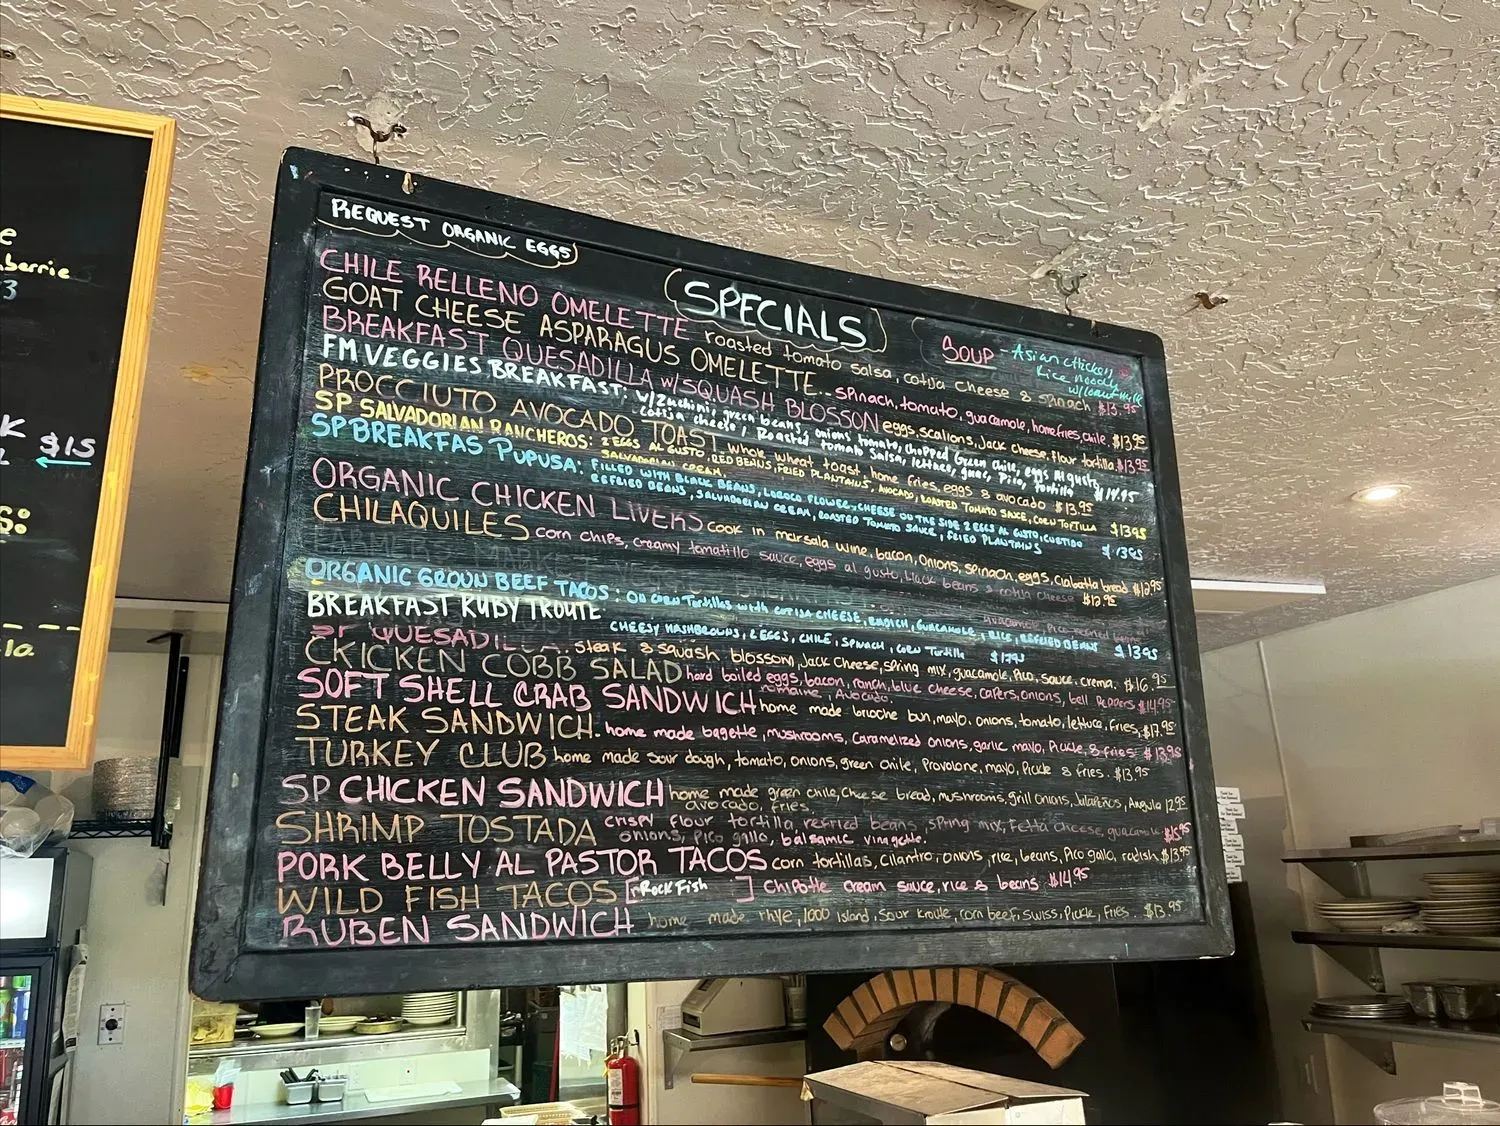 REQUEST ORGANIC EGGS
SPECIALS
SOUP - Asian chicken
Rice noody
w/
CHILE RELLENO OMELETTE roasted tomato salsa, cotija cheese & spinach $13.95
GOAT CHEESE ASPARAGUS OMELETTE.. spinach, tomato, guacamole, homefries, chile. $13.95
BREAKFAST QUESADILLA w/SQUASH BLOSSOM eggs, scallions, Jack cheese, flour tortilla $13.95
FM VEGGIES BREAKFAST: w/Zucchini, green beans, onions tomato, chopped Green chile, eggs Al gusto,
cotija cheese, Roasted tomato salsa, lettuce, guac, Pico, tortilla $14.95
PROCCIUTO AVOCADO TOAST whole wheat toast, home fries, eggs & avocado $13.95
SP SALVADORIAN RANCHEROS: 2 EGGS AL GUSTO, RED BEANS, FRIED PLANTAINS, AVOCADO, ROASTED TOMATO SAUCE, CORN TORTILLA $13.95
SALVADORIAN CREAM.
SP BREAKFAS PUPUSA: FILLED WITH BLACK BEANS, LOROCO FLOWER, CHEESE ON THE SIDE 2 EGGS AL GUSTO, CURTIDO $13.95
REFRIED BEANS, SALVADORIAN CREAM, ROASTED TOMATO SAUCE, FRIED PLANTAINS
ORGANIC CHICKEN LIVERS cook in marsala wine, bacon, onions, spinach, eggs, ciabatta bread $12.95
CHILAQUILES corn chips, creamy tomatillo sauce, eggs al gusto, black beans & cotija cheese $12.95
ORGANIC GROUN BEEF TACOS: ON CORN Tortillas with COTIJA CHEESE, RADISH, GUACAMOLE, RICE, REFRIED BEANS $13.95
BREAKFAST RUBY TROUTE CHEESY HASHBROWNS, 2 EGGS, CHILE, SPINACH, CORN Tortilla $17.95
SP QUESADILLA. steak & squash blossom, Jack cheese, spring mix, guacamole, Pico, sauce, crema. $16.95
CKICKEN COBB SALAD hard boiled eggs, bacon, ranch, blue cheese, capers, onions, bell peppers $14.95
romaine, Avocado.
SOFT SHELL CRAB SANDWICH home made brioche bun, mayo, onions, tomato, lettuce, fries, $17.95
STEAK SANDWICH. home made bagette, mushrooms, caramelized onions, garlic mayo, Pickle, & fries $13.95
TURKEY CLUB home made sour dough, tomato, onions, green chile, Provolone, mayo, Pickle & fries. $13.95
SP CHICKEN SANDWICH home made green chile, cheese bread, mushrooms, grill onions, Jalapeños, Arugula 12.95
avocado, fries.
SHRIMP TOSTADA crispy flour tortilla, refried beans, spring mix, Fetta cheese, guacamole $15.95
onions, Pico gallo, balsamic vinagrette.
PORK BELLY AL PASTOR TACOS corn tortillas, cilantro, onions, rice, beans, Pico gallo, radish $13.95
WILD FISH TACOS [Rock Fish] Chipotle cream sauce, rice & beans $14.95
RUBEN SANDWICH home made rhye, 1000 Island, sour kroute, corn beef, swiss, Pickle, Fries. $13.95
e
berrie
3
K $15